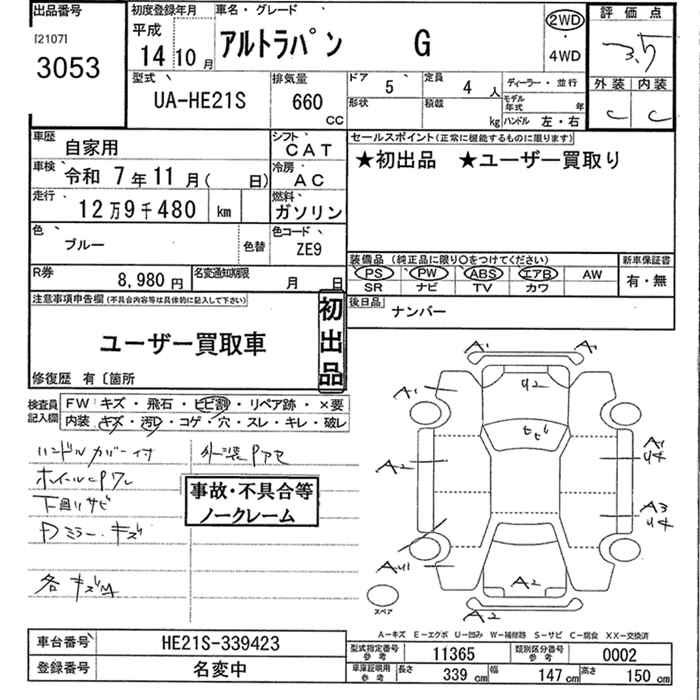 出品番号 初度登録年月 車名・グレード 評価点
[2107] 平成 2WD 3.5
3053 14 10月 アルトラパン G 4WD
型式 排気量 ドア 5 定員 4人 ディーラー・並行 外装 内装
UA-HE21S 660 CC 形状 積載 kg モデル年式 年 C C
ハンドル 左・右
車歴 自家用 シフト CAT セールスポイント(正常に機能するものに限ります)
車検 令和 7年 11月( 日) 冷房 AC ★初出品 ★ユーザー買取り
走行 12万9千480 km 燃料 ガソリン
色 ブルー 色替 色コード ZE9
装備品(純正品に限り○をつけてください) 新車保証書
R券 8,980円 名変通知期限 月 日 PS PW ABS エアB AW 有・無
SR ナビ TV カワ
注意事項申告欄(不具合内容等は具体的に記入して下さい) 初出品 後日品 ナンバー
ユーザー買取車
修復歴 有〔箇所
検査員記入欄 FW:キズ・飛石・ヒビ割・リペア跡・×要
内装:キズ・汚レ・コゲ・穴・スレ・キレ・破レ
ハンドルカバー付 外装Pアセ
下廻りサビ
事故・不具合等
ノークレーム
Dミラー・キズ
各キズM
A1 A1
A1 U2
ヒビ
A2 A1 U4
A3 U4
AU1 A2
スペア A2
A-キズ E-エクボ U-凹み W-補修跡 S-サビ C-腐食 XX-交換済
車台番号 HE21S-339423 型式指定番号 参考 11365 類別区分番号 参考 0002
登録番号 名変中 車庫証明用 参考 長さ 339 cm 幅 147 cm 高さ 150 cm